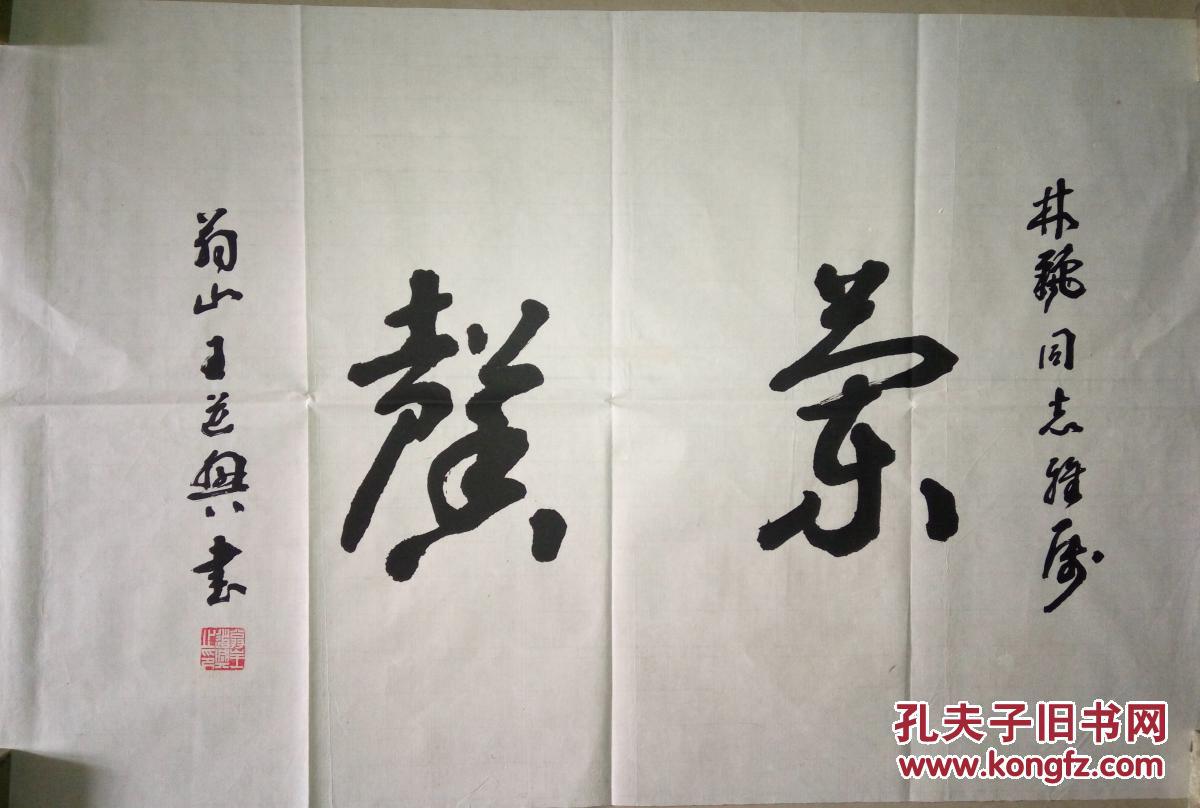 林魏同志雅属
蘭馨
翁山王道興書
孔夫子旧书网
www.kongfz.com